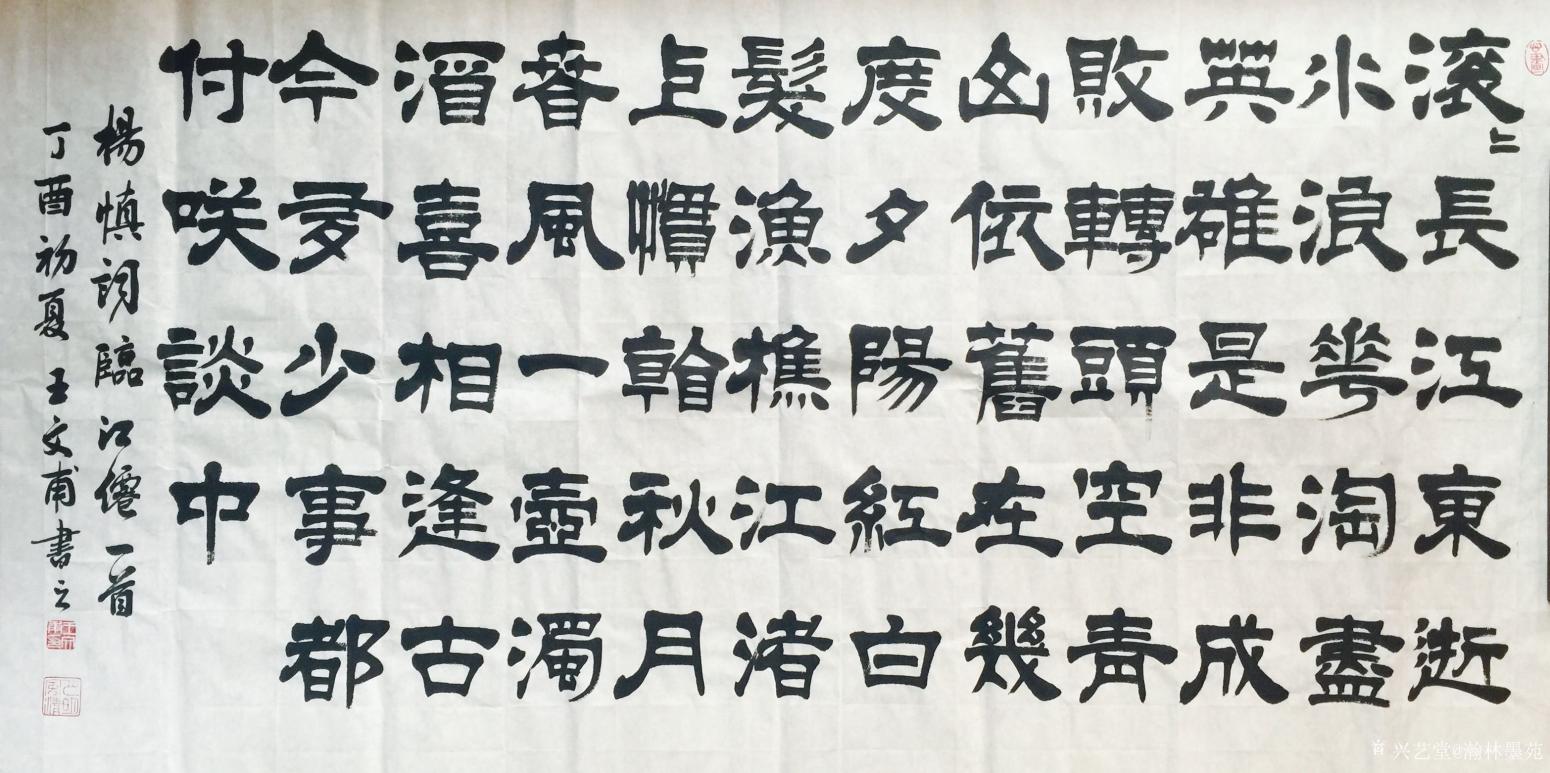 滚〻長江東逝
水浪華淘盡
英雄是非成
敗轉頭空青
山依舊在幾
度夕陽紅白
髮漁樵江渚
上慣看秋月
春風一壺濁
酒喜相逢古
今多少事都
付咲談中
楊慎詞臨江僊一首
丁酉初夏王文甫書之
兴艺堂@瀚林墨苑